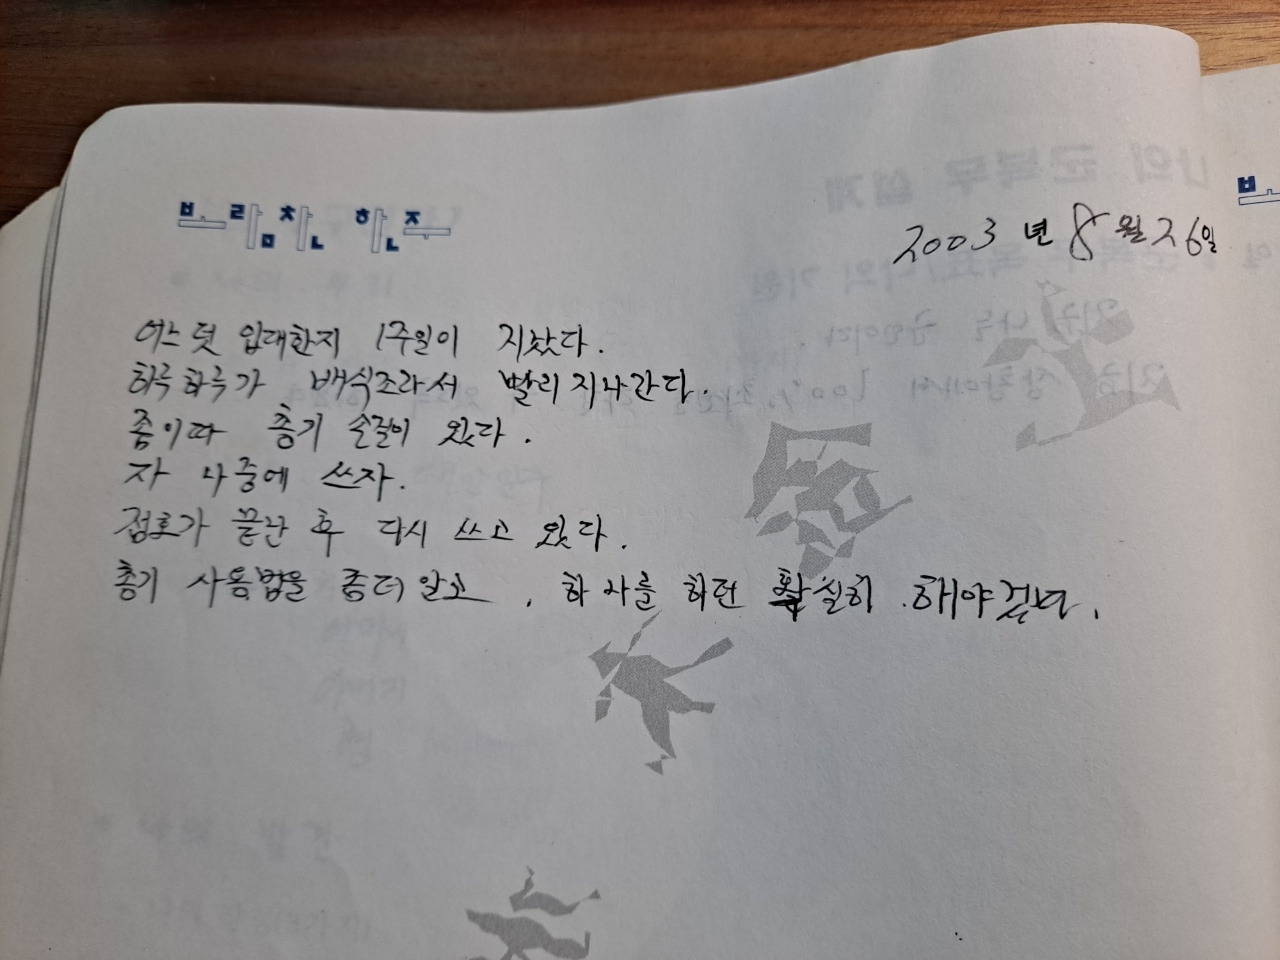 보람찬 한주
2003년 8월 26일
어느덧 입대한지 1주일이 지났다.
하루하루가 배식조라서 빨리지나간다.
좀이따 총기 손질이 있다.
자 나중에 쓰자.
점호가 끝난 후 다시 쓰고 있다.
총기 사용법을 좀더 알고, 하나를 하던 확실히 해야겠다.